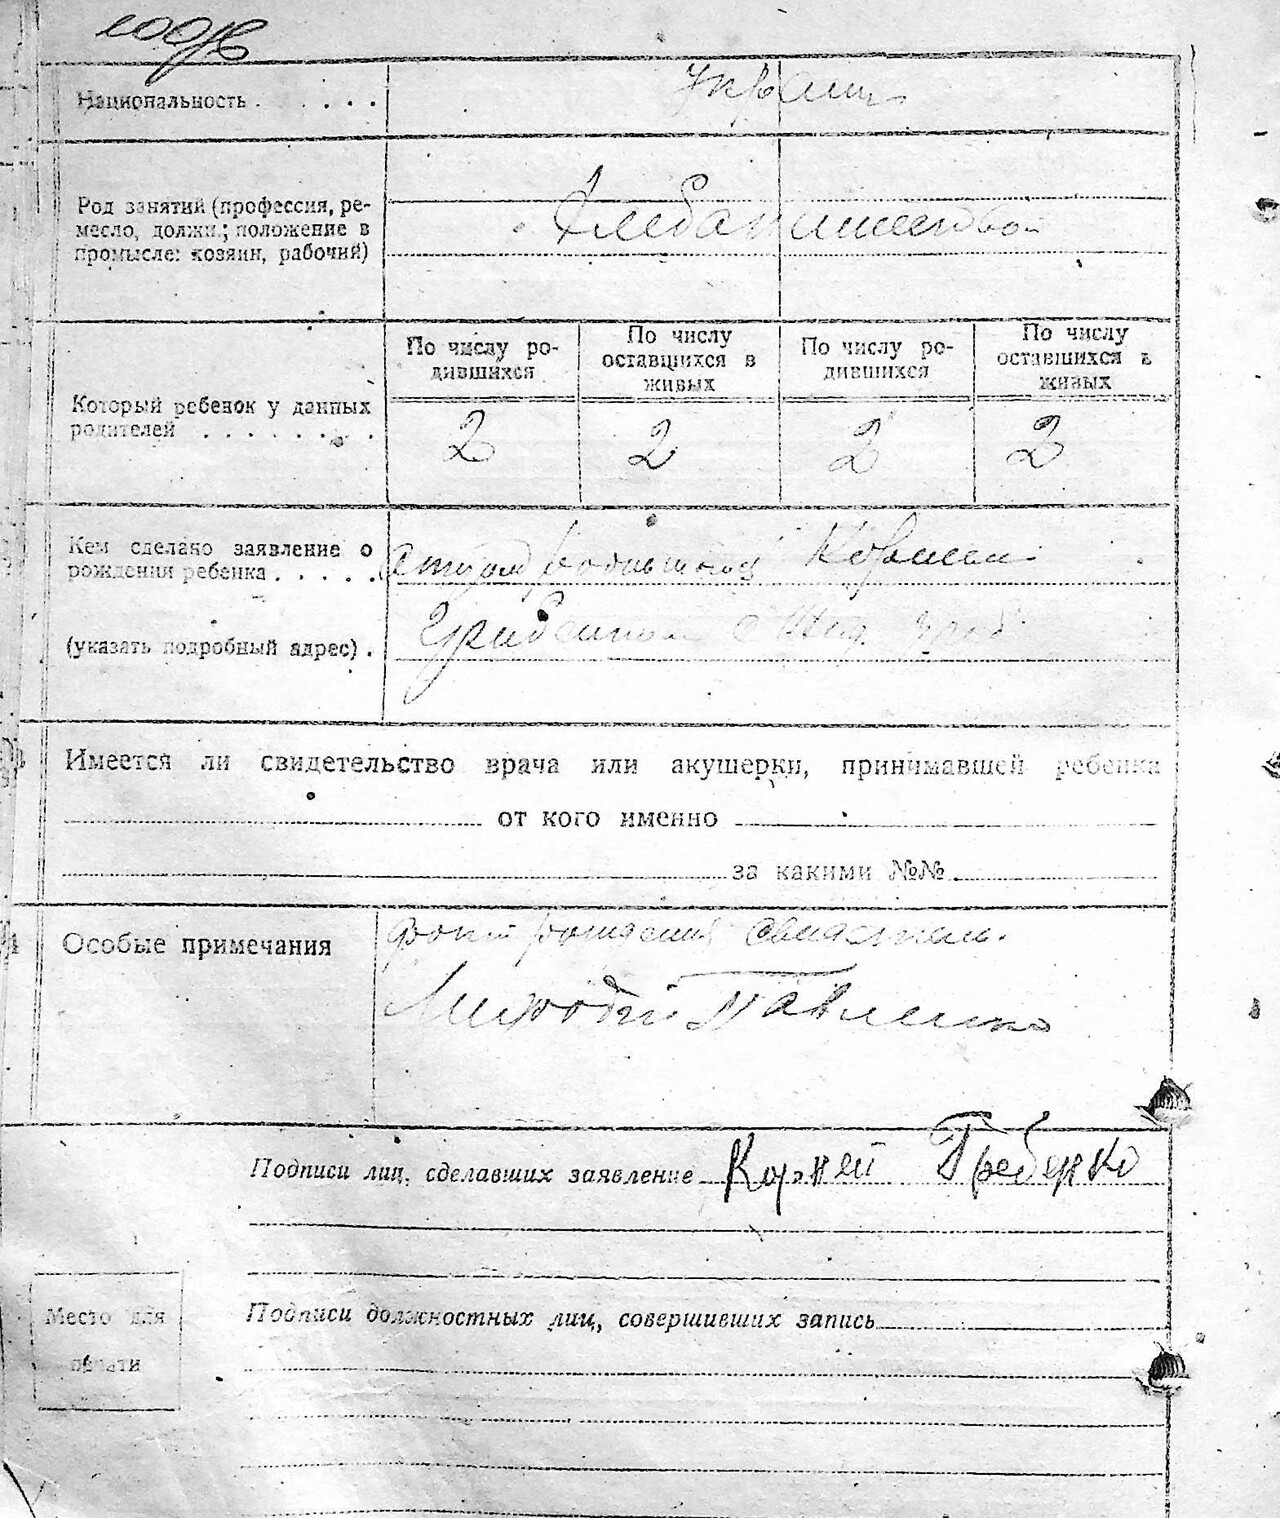 Национальность . . . . . .
Украин
Род занятий (профессия, ре-
месло, должн.; положение в
промысле: хозяин, рабочий)
Хлебопашество
По числу ро-
дившихся
По числу
оставшихся в
живых
По числу ро-
дившихся
По числу
оставшихся в
живых
Который ребенок у данных
родителей . . . . . . . .
2 2 2 2
Кем сделано заявление о
рождении ребенка . . . . .
Корнеем
(указать подробный адрес) .
Имеется ли свидетельство врача или акушерки, принимавшей ребенка
от кого именно
за какими №№
Особые примечания
факт рождения
Павленко
Подписи лиц, сделавших заявление Корней Гребенко
Подписи должностных лиц, совершивших запись
Место для
печати